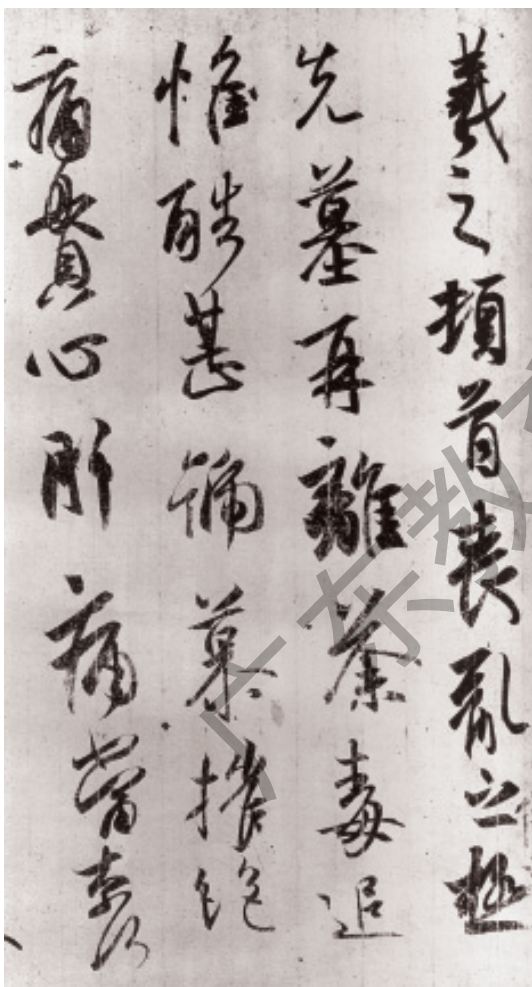 羲之頓首喪亂之極
先墓再離荼毒追
惟酷甚號慕摧絕
痛貫心肝痛當奈何
广东教